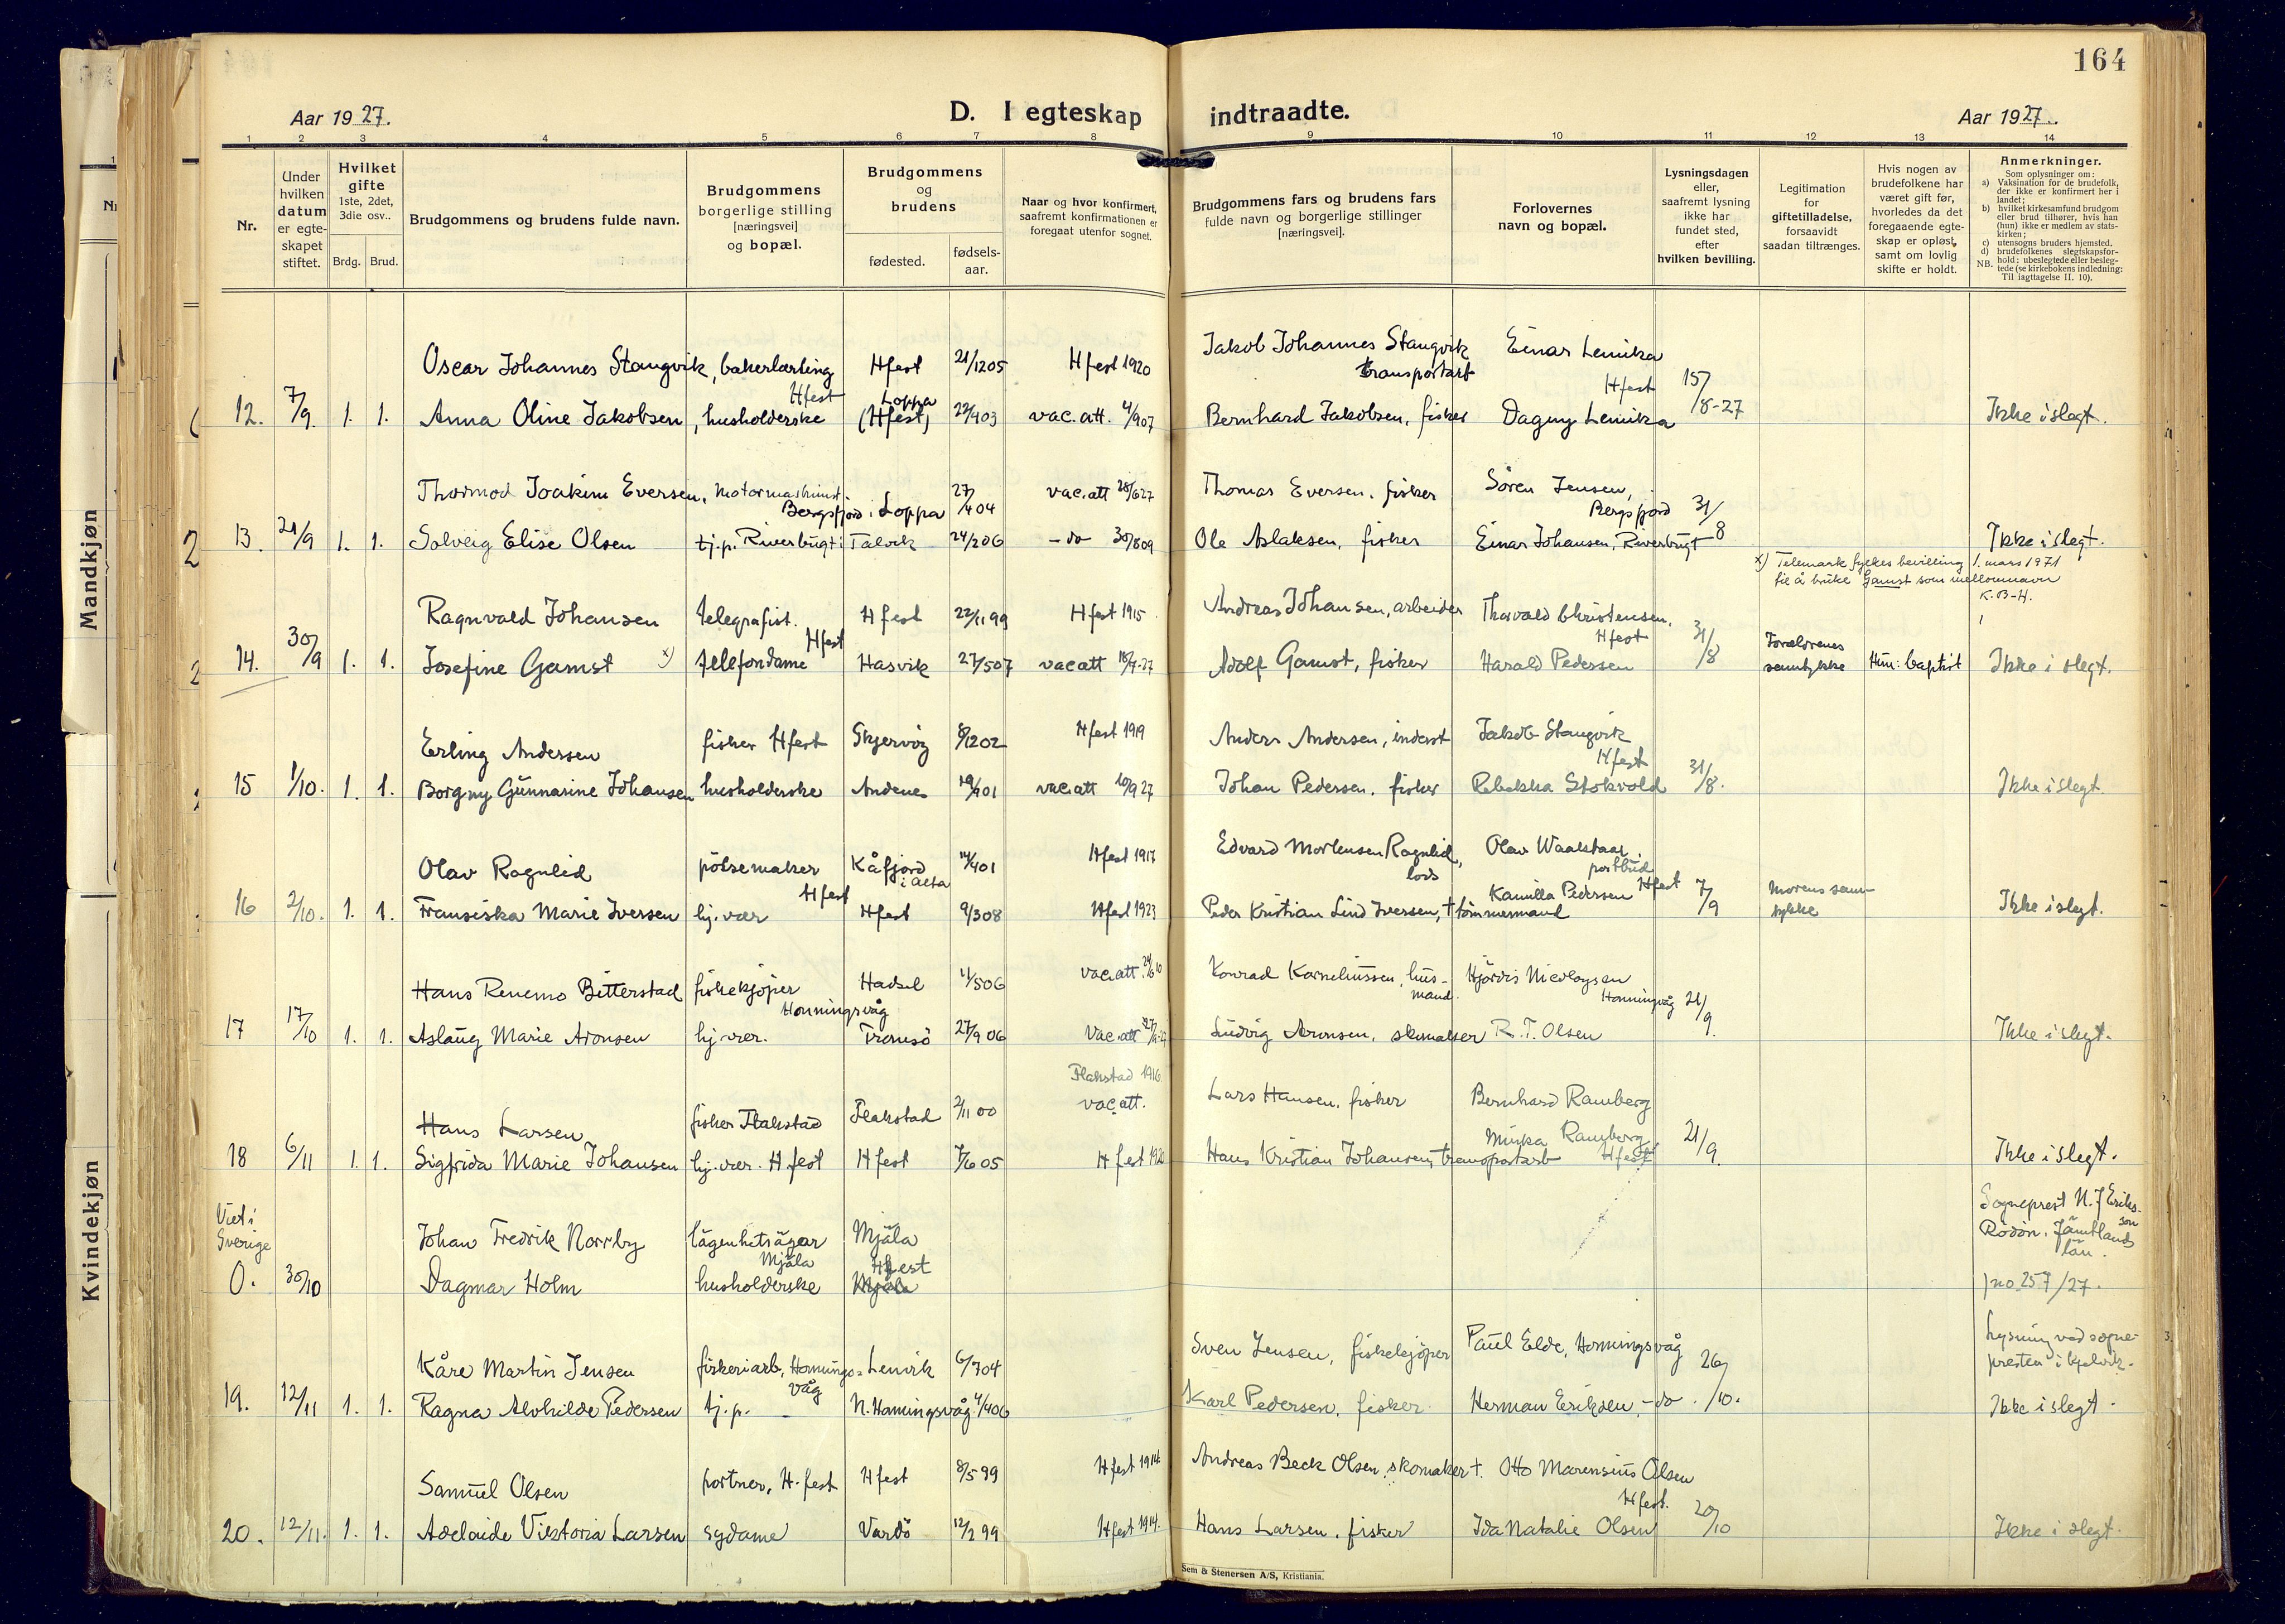 164
Aar 1927.
D. I egteskap indtraadte.
Aar 1927.
1 2 3 4 5 6 7 8 9 10 11 12 13 14
Nr.
Under hvilken datum er egteskapet stiftet.
Hvilket gifte 1ste, 2det, 3die osv..
Brdg. Brud.
Brudgommens og brudens fulde navn.
Brudgommens borgerlige stilling [næringsvei] og bopæl.
Brudgommens og brudens
fødested.
fødsels-aar.
Naar og hvor konfirmert, saafremt konfirmationen er foregaat utenfor sognet.
Brudgommens fars og brudens fars fulde navn og borgerlige stillinger [næringsvei].
Forlovernes navn og bopæl.
Lysningsdagen eller, saafremt lysning ikke har fundet sted, efter hvilken bevilling.
Legitimation for giftetilladelse, forsaavidt saadan tiltrænges.
Hvis nogen av brudefolkene har været gift før, hvorledes da det foregaaende egteskap er opløst, samt om lovlig skifte er holdt.
Anmerkninger.
Som oplysninger om:
a) Vaksination for de brudefolk, der ikke er konfirmert her i landet;
b) hvilket kirkesamfund brudgom eller brud tilhører, hvis han (hun) ikke er medlem av statskirken;
c) utensogns bruders hjemsted.
d) brudefolkenes slegtskapsforhold: ubeslegtede eller beslegtede (se kirkebokens indledning: Til iagttagelse II. 10).
NB.
Oscar Johannes Stangvik, bakerlærling Hfest Hfest 21/12 05 Hfest 1920 Jakob Johannes Stangvik transportarb Einar Lemika Hfest
12. 7/9. 1. 1. Anna Oline Jakobsen, husholderske Loppa (Hfest) 22/9 03 vac. att. 4/9 07 Bernhard Jakobsen, fisker Dagny Lemika 15/8-27 Ikke i slegt.
Thormod Joakim Eversen, motormaskinist Bergsfjord i Loppa 27/4 04 vac. att 28/6 27 Thomas Eversen, fisker Sören Jensen, Bergsfjord
13. 21/9 1. 1. Solveig Elise Olsen tj.p. Riverbugt i Talvik 24/2 06 - do 30/8 09 Ole Aslaksen, fisker Einar Johansen, Riverbugt 31/8 Ikke i slegt.
x) Telemark fylkes bevilling 1. mars 1971
til å bruke Gamst som mellomnavn
K.B-H.
Ragnvald Johansen telegrafist. Hfest Hfest 22/11 99 Hfest 1915 Andreas Johansen, arbeider Thorvald Christensen, Hfest
14. 30/9 1. 1. Josefine Gamst x) telefondame Hasvik 27/5 07 vac att 18/7-27 Adolf Gamst, fisker Harald Pedersen 31/8 Forældrenes samtykke Hun: baptist Ikke i slegt.
Erling Andersen fisker Hfest Skjervög 8/12 02 Hfest 1919 Anders Andersen, inderst Jakob Stangvik Hfest
15 1/10. 1. 1. Borgny Gunnarine Johansen husholderske Andenes 19/9 01 vac. att 10/9 27 Johan Pedersen, fisker Rebekka Stokvold 31/8. Ikke i slegt.
Olav Rognlid pölsemaker Hfest Kåfjord i Alta 14/4 01 Hfest 1917 Edvard Mortensen Rognlid, lods Olav Waalstaar. postbud Hfest
16 2/10. 1. 1. Fransiska Marie Iversen hj. vær Hfest 9/3 08 Hfest 1923 Peder Kristian Lind Iversen, † tömmermand Kamilla Pedersen 7/9 Morens samtykke Ikke i slegt.
Hans Renemo Bitterstad fiskekjøper Honningsvåg Hadsel 11/5 06 vac. att. Konrad Korneliussen, husmand. Hjördis Nicolaysen Honningvåg
17 17/10 1. 1. Aslaug Marie Aronsen hj. vær. Tromsö 27/9 06 Vac. att Ludvig Aronsen, skomaker R. T. Olsen 21/9. Ikke i slegt.
Hans Larsen fisker Flakstad Flakstad 2/11 00 Flakstad 1916. vac. att. Lars Hansen, fisker Bernhard Ramberg
18 6/11 1. 1. Sigfrida Marie Johansen hj. vær. H.fest Hfest 7/6 05 Hfest 1920 Hans Kristian Johansen, transportarb Minka Ramberg Hfest 21/9. Ikke i slegt.
Viet i Sverige Johan Fredrik Norrby lägenhetsägar Mjäla Mjäla Sogneprest N. J Eriksson Rödön, Jämtlands län.
0. 30/10 Dagmar Holm husholderske Hfest Mjäla jno 257/27.
Kåre Martin Jensen fiskeriarb, Honningsvåg Lenvik 6/7 04 Sven Jensen, fiskekjöper Paul Elde, Honningsvåg Lysning ved sognepresten i Kjelvik.
19. 12/11 1. 1. Ragna Alvhilde Pedersen tj. p. - N. Honningsvåg 4/4 06 Karl Pedersen, fisker Herman Eriksen, - do 26/10. Ikke i slegt.
Samuel Olsen portner, H.fest Hfest 8/5 99 Hfest 1914 Andreas Beck Olsen, skomaker †. Otto Marensius Olsen Hfest.
20. 12/11. 1. 1. Adelaide Viktoria Larsen sydame Vardö 12/2 99 Hfest 1914. Hans Larsen, fisker Ida Natalie Olsen 20/10 Ikke i slegt.
Sem & Stenersen A/S, Kristiania.
Mandkjøn
Kvindekjøn